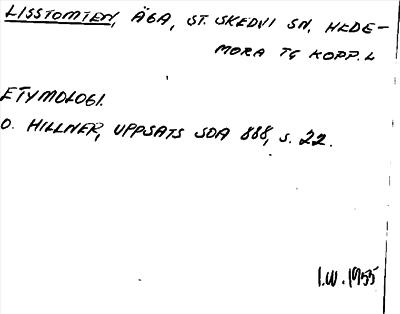 LISSTOMTEN, ÄGA, ST. SKEDVI SN, HEDE-
MORA TG KOPP. L
ETYMOLOGI.
O. HILLNER, UPPSATS SOA 888, S. 22.
I.W. 1955